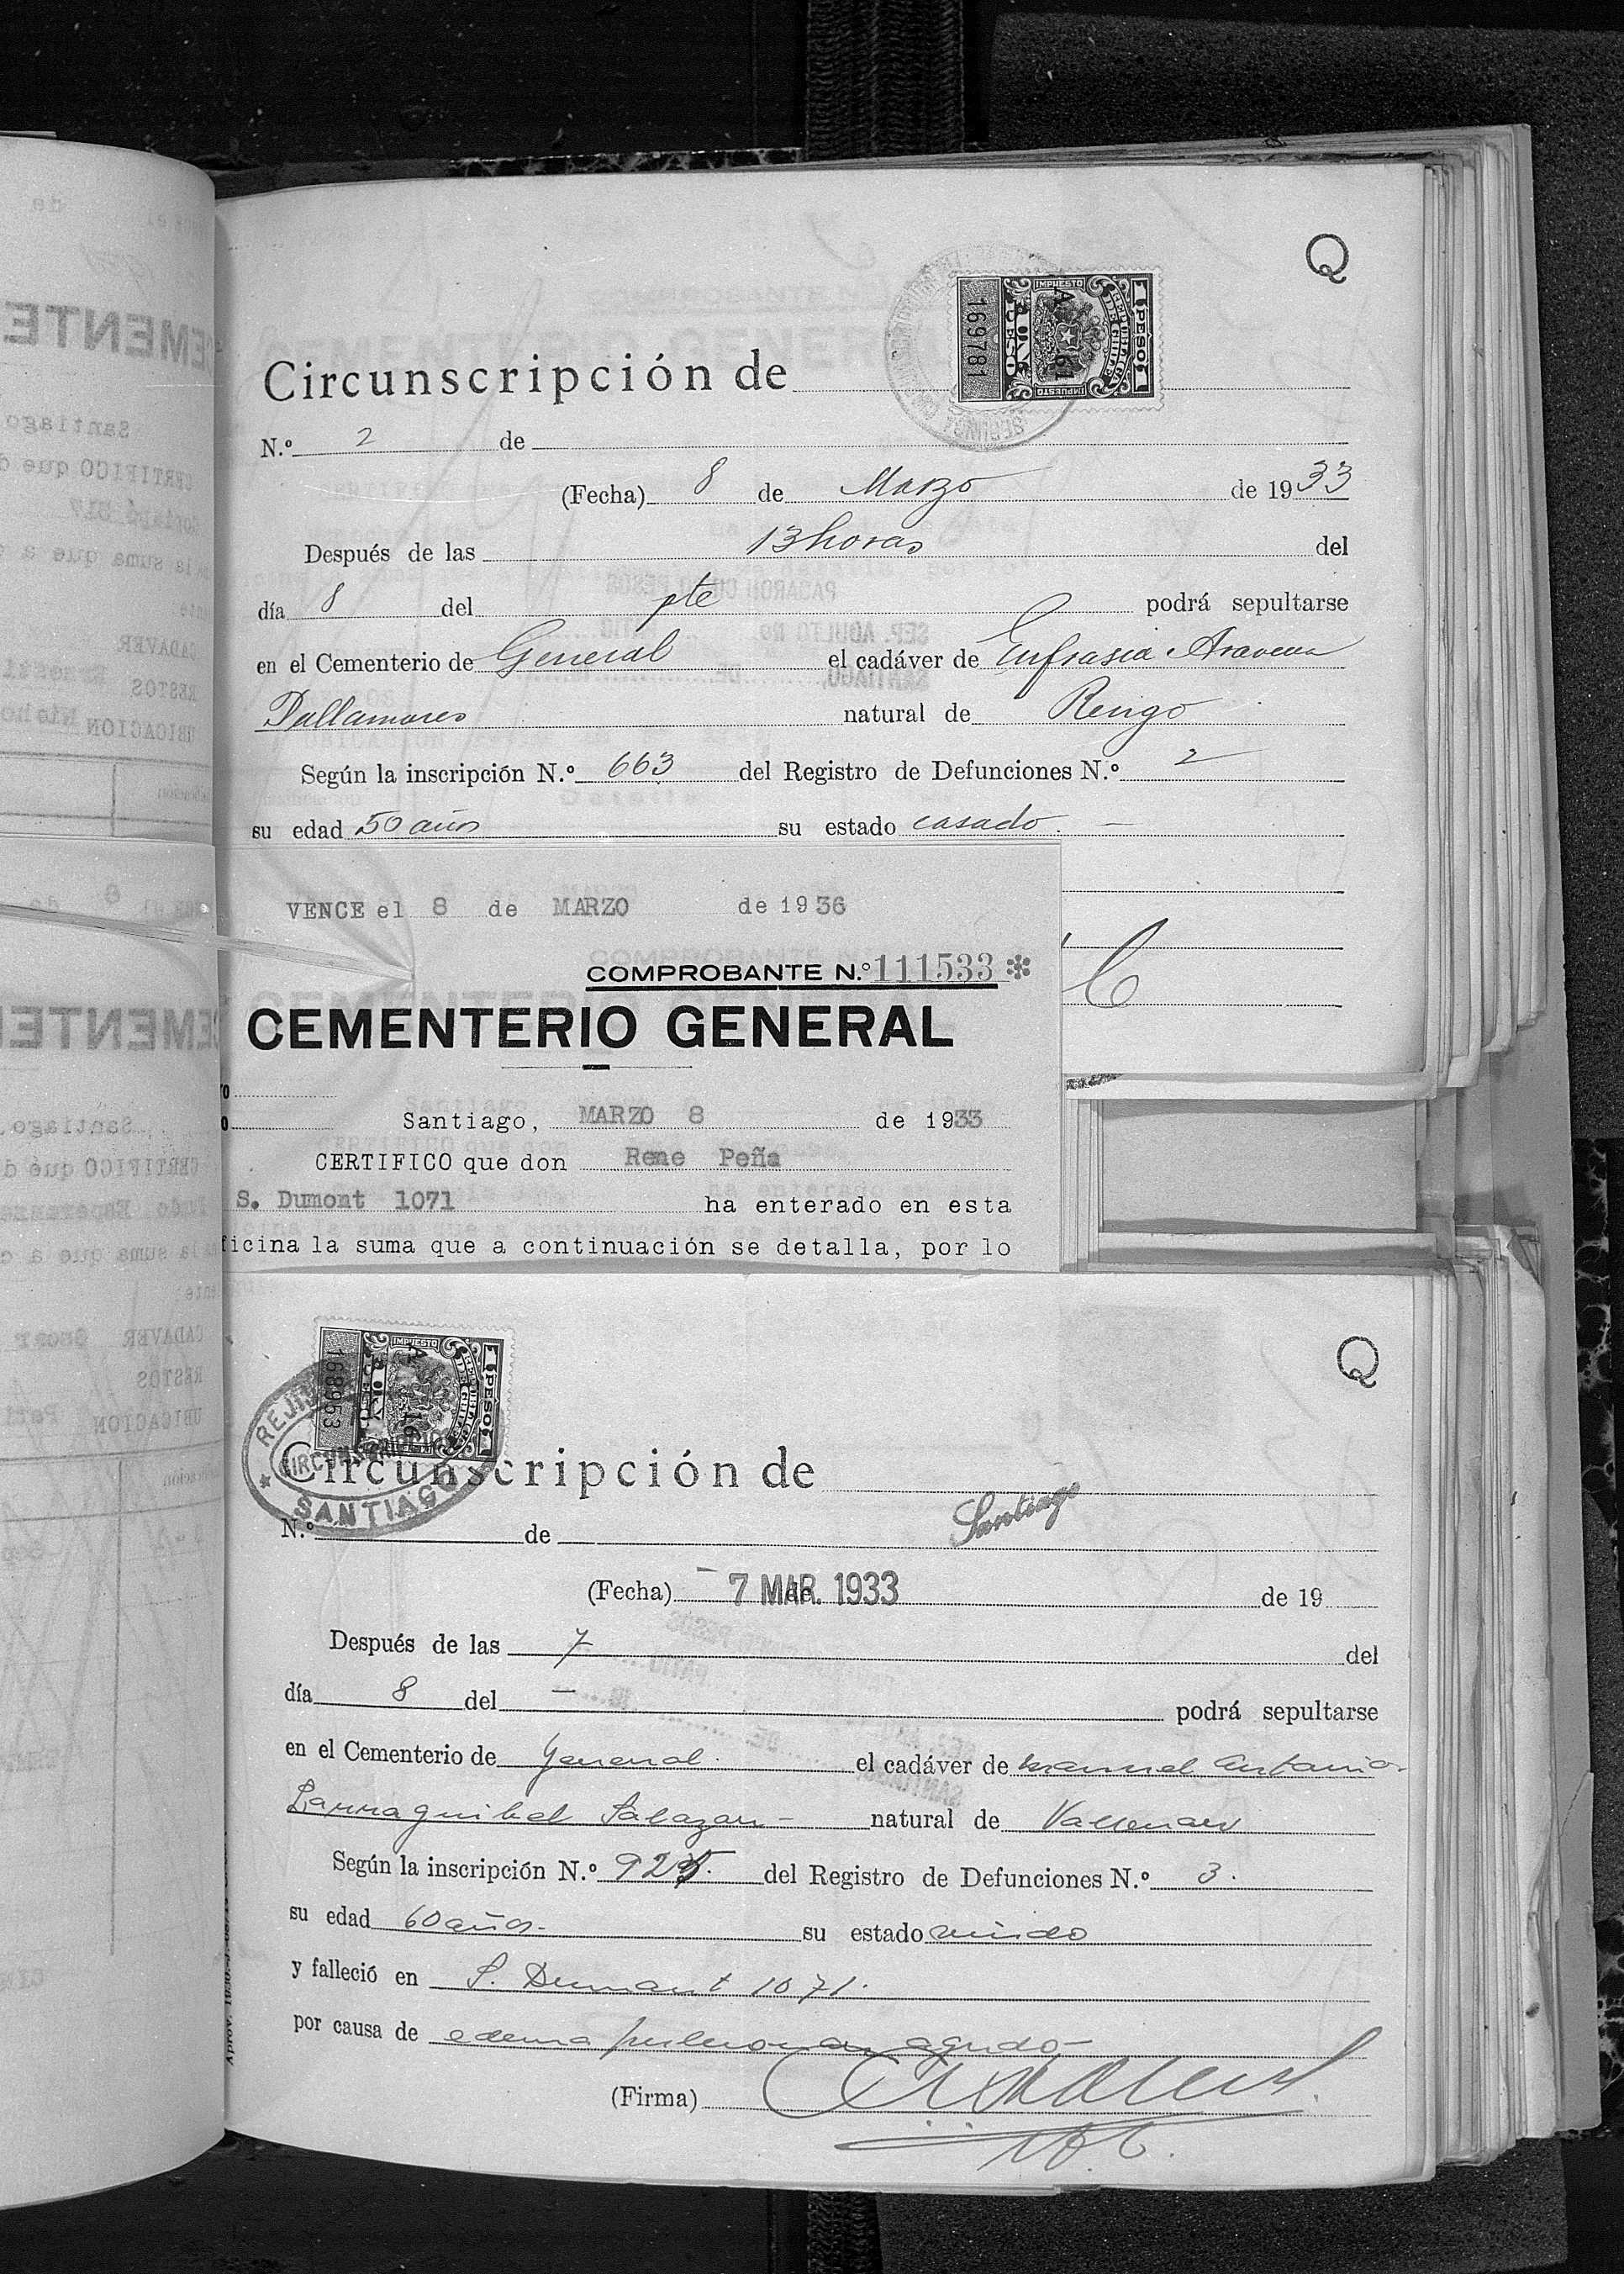 Q
1 PESO 1
REPUBLICA DE CHILE
IMPUESTO
169781
Circunscripción de
N.º 2 de
(Fecha) 8 de Marzo de 1933
Después de las 13 horas del
día 8 del pte podrá sepultarse
en el Cementerio de General el cadáver de Eufrasia Aravena
natural de Rengo
Según la inscripción N.º 663 del Registro de Defunciones N.º 2
su edad 50 años su estado casado.
VENCE el 8 de MARZO de 1936
COMPROBANTE N.º 111533 *
CEMENTERIO GENERAL
Santiago, MARZO 8 de 1933
CERTIFICO que don Rene Peña
S. Dumont 1071 ha enterado en esta
ficina la suma que a continuación se detalla, por lo
Q
1 PESO 1
REPUBLICA DE CHILE
IMPUESTO
168953
CIRCUNSCRIPCION
SANTIAGO
Circunscripción de
Santiago
N.º de
(Fecha) 7 MAR. 1933 de de 19
Después de las 7 del
día 8 del — podrá sepultarse
en el Cementerio de General. el cadáver de Manuel Antonio
Larraguibel Salazar — natural de Vallenar
Según la inscripción N.º 925. del Registro de Defunciones N.º 3.
su edad 60 años. su estado viudo
y falleció en S. Dumont 1071.
por causa de edema pulmonar agudo
(Firma)